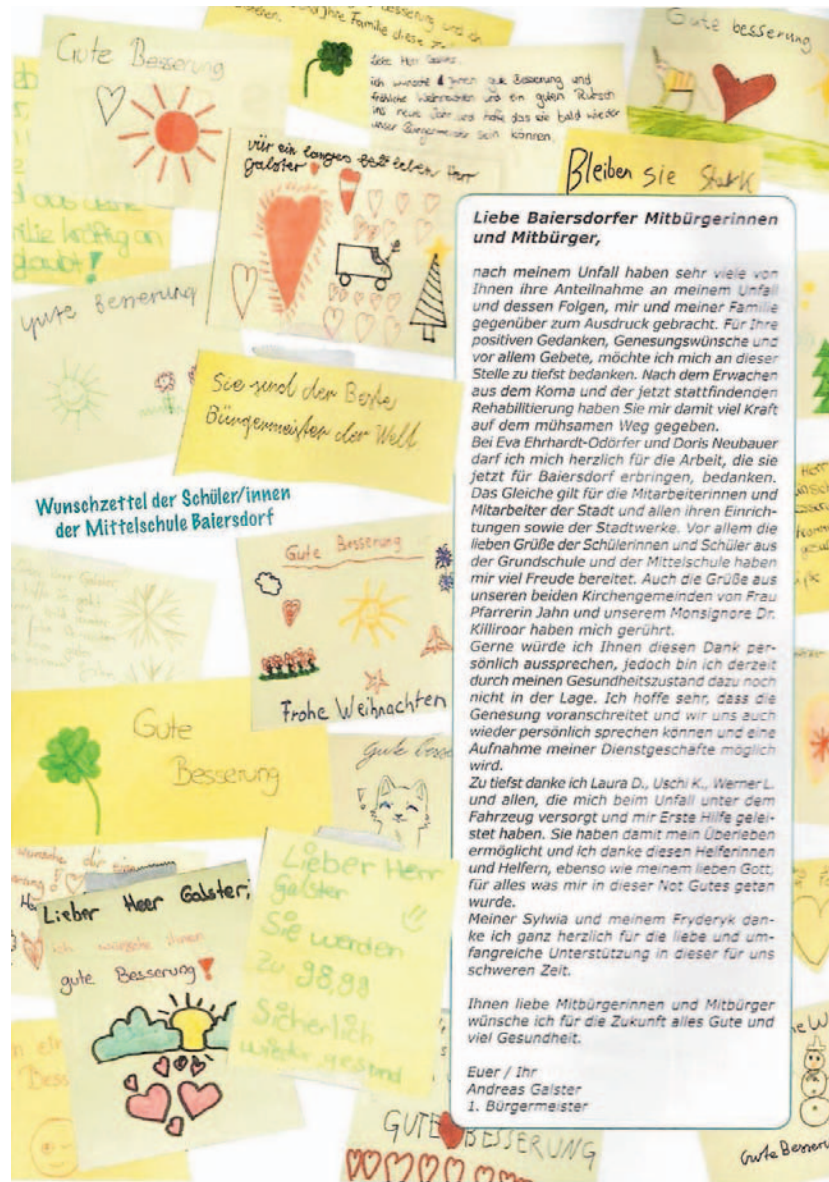 Gute Besserung
Jhre Familie diese
Liebe Herr Galster,
ich wünsche Ihnen gute Besserung und
fröhliche Weihnachten und ein guten Rutsch
ins neue Jahr und hoffe das sie bald wieder
unser Bürgermeister sein können.
Gute besserung
Bleiben sie Stark
vür ein langes leben Herr
Galster
glaubt!
gute Besserung
Sie sind der Beste
Bürgermeister der Welt
Wunschzettel der Schüler/innen
der Mittelschule Baiersdorf
Gute Besserung
Frohe Weihnachten
Gute
Besserung
Gute
Lieber Heer Galster,
ich wünsche ihnen
gute Besserung!
Lieber Herr
Galster
Sie werden
zu 98,98
Sicherlich
wieder gesund
GUTE BESSERUNG
Liebe Baiersdorfer Mitbürgerinnen
und Mitbürger,
nach meinem Unfall haben sehr viele von
Ihnen ihre Anteilnahme an meinem Unfall
und dessen Folgen, mir und meiner Familie
gegenüber zum Ausdruck gebracht. Für Ihre
positiven Gedanken, Genesungswünsche und
vor allem Gebete, möchte ich mich an dieser
Stelle zu tiefst bedanken. Nach dem Erwachen
aus dem Koma und der jetzt stattfindenden
Rehabilitierung haben Sie mir damit viel Kraft
auf dem mühsamen Weg gegeben.
Bei Eva Ehrhardt-Odörfer und Doris Neubauer
darf ich mich herzlich für die Arbeit, die sie
jetzt für Baiersdorf erbringen, bedanken.
Das Gleiche gilt für die Mitarbeiterinnen und
Mitarbeiter der Stadt und allen ihren Einrich-
tungen sowie der Stadtwerke. Vor allem die
lieben Grüße der Schülerinnen und Schüler aus
der Grundschule und der Mittelschule haben
mir viel Freude bereitet. Auch die Grüße aus
unseren beiden Kirchengemeinden von Frau
Pfarrerin Jahn und unserem Monsignore Dr.
Killiroor haben mich gerührt.
Gerne würde ich Ihnen diesen Dank per-
sönlich aussprechen, jedoch bin ich derzeit
durch meinen Gesundheitszustand dazu noch
nicht in der Lage. Ich hoffe sehr, dass die
Genesung voranschreitet und wir uns auch
wieder persönlich sprechen können und eine
Aufnahme meiner Dienstgeschäfte möglich
wird.
Zu tiefst danke ich Laura D., Uschi K., Werner L.
und allen, die mich beim Unfall unter dem
Fahrzeug versorgt und mir Erste Hilfe gelei-
stet haben. Sie haben damit mein Überleben
ermöglicht und ich danke diesen Helferinnen
und Helfern, ebenso wie meinem lieben Gott,
für alles was mir in dieser Not Gutes getan
wurde.
Meiner Sylwia und meinem Fryderyk dan-
ke ich ganz herzlich für die liebe und um-
fangreiche Unterstützung in dieser für uns
schweren Zeit.
Ihnen liebe Mitbürgerinnen und Mitbürger
wünsche ich für die Zukunft alles Gute und
viel Gesundheit.
Euer / Ihr
Andreas Galster
1. Bürgermeister